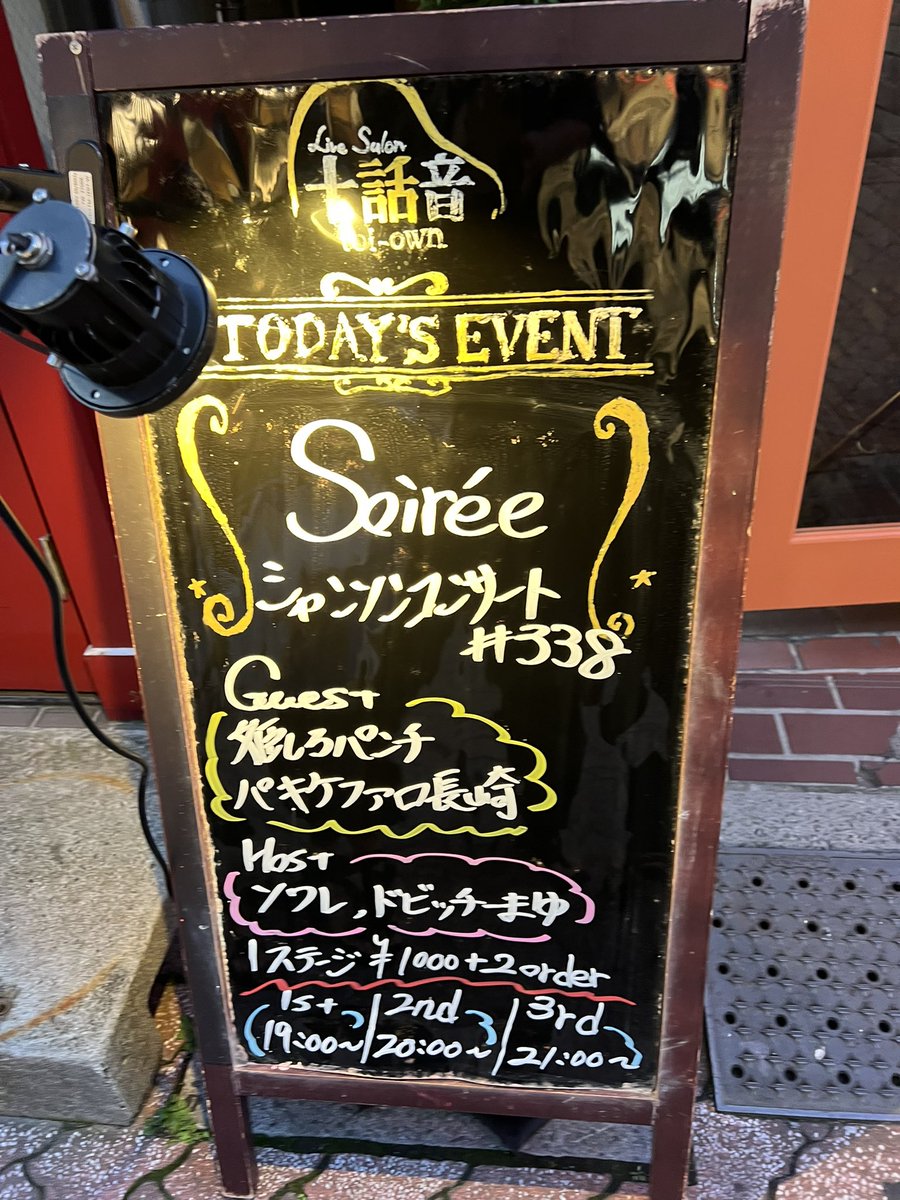 Live Salon
十話音
toi-own
TODAY'S EVENT
Soirée
シャンソンコンサート
#338
Guest
しろパンチ
パキケファロ長崎
Host
ソワレ, ドビッチーまゆ
1ステージ ¥1000+2order
1st / 2nd / 3rd
19:00~ / 20:00~ / 21:00~